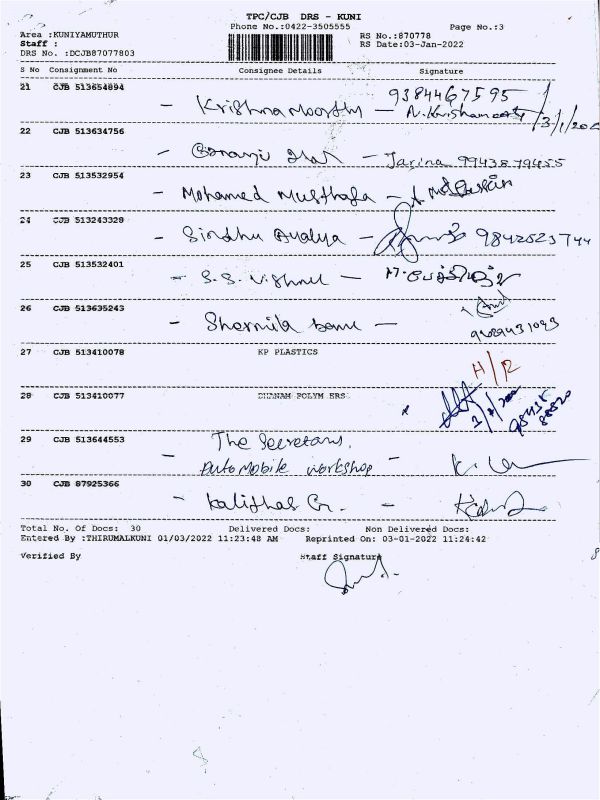 TPC/CJB DRS - KUNI
Phone No.:0422-3505555
Page No.:3
Area :KUNIYAMUTHUR
RS No.:870778
Staff :
RS Date:03-Jan-2022
DRS No. :DCJB87077803
S No Consignment No Consignee Details Signature
21 CJB 513654894
9384467595
- Krishnamoorthy -
22 CJB 513634756
- Jarina 9943879455
23 CJB 513532954
- Mohamed Musthafa -
24 CJB 513243328
- Sindhu - 9842523744
25 CJB 513532401
- S.S. Vishnu -
26 CJB 513635243
- Sharmila banu -
27 CJB 513410078 KP PLASTICS
28 CJB 513410077 DHANAM POLYM ERS
29 CJB 513644553
- The Secretary,
Automobile workshop -
30 CJB 87925366
- Kalithas G. -
Total No. Of Docs: 30 Delivered Docs: Non Delivered Docs:
Entered By :THIRUMALKUNI 01/03/2022 11:23:48 AM Reprinted On: 03-01-2022 11:24:42
Verified By Staff Signature